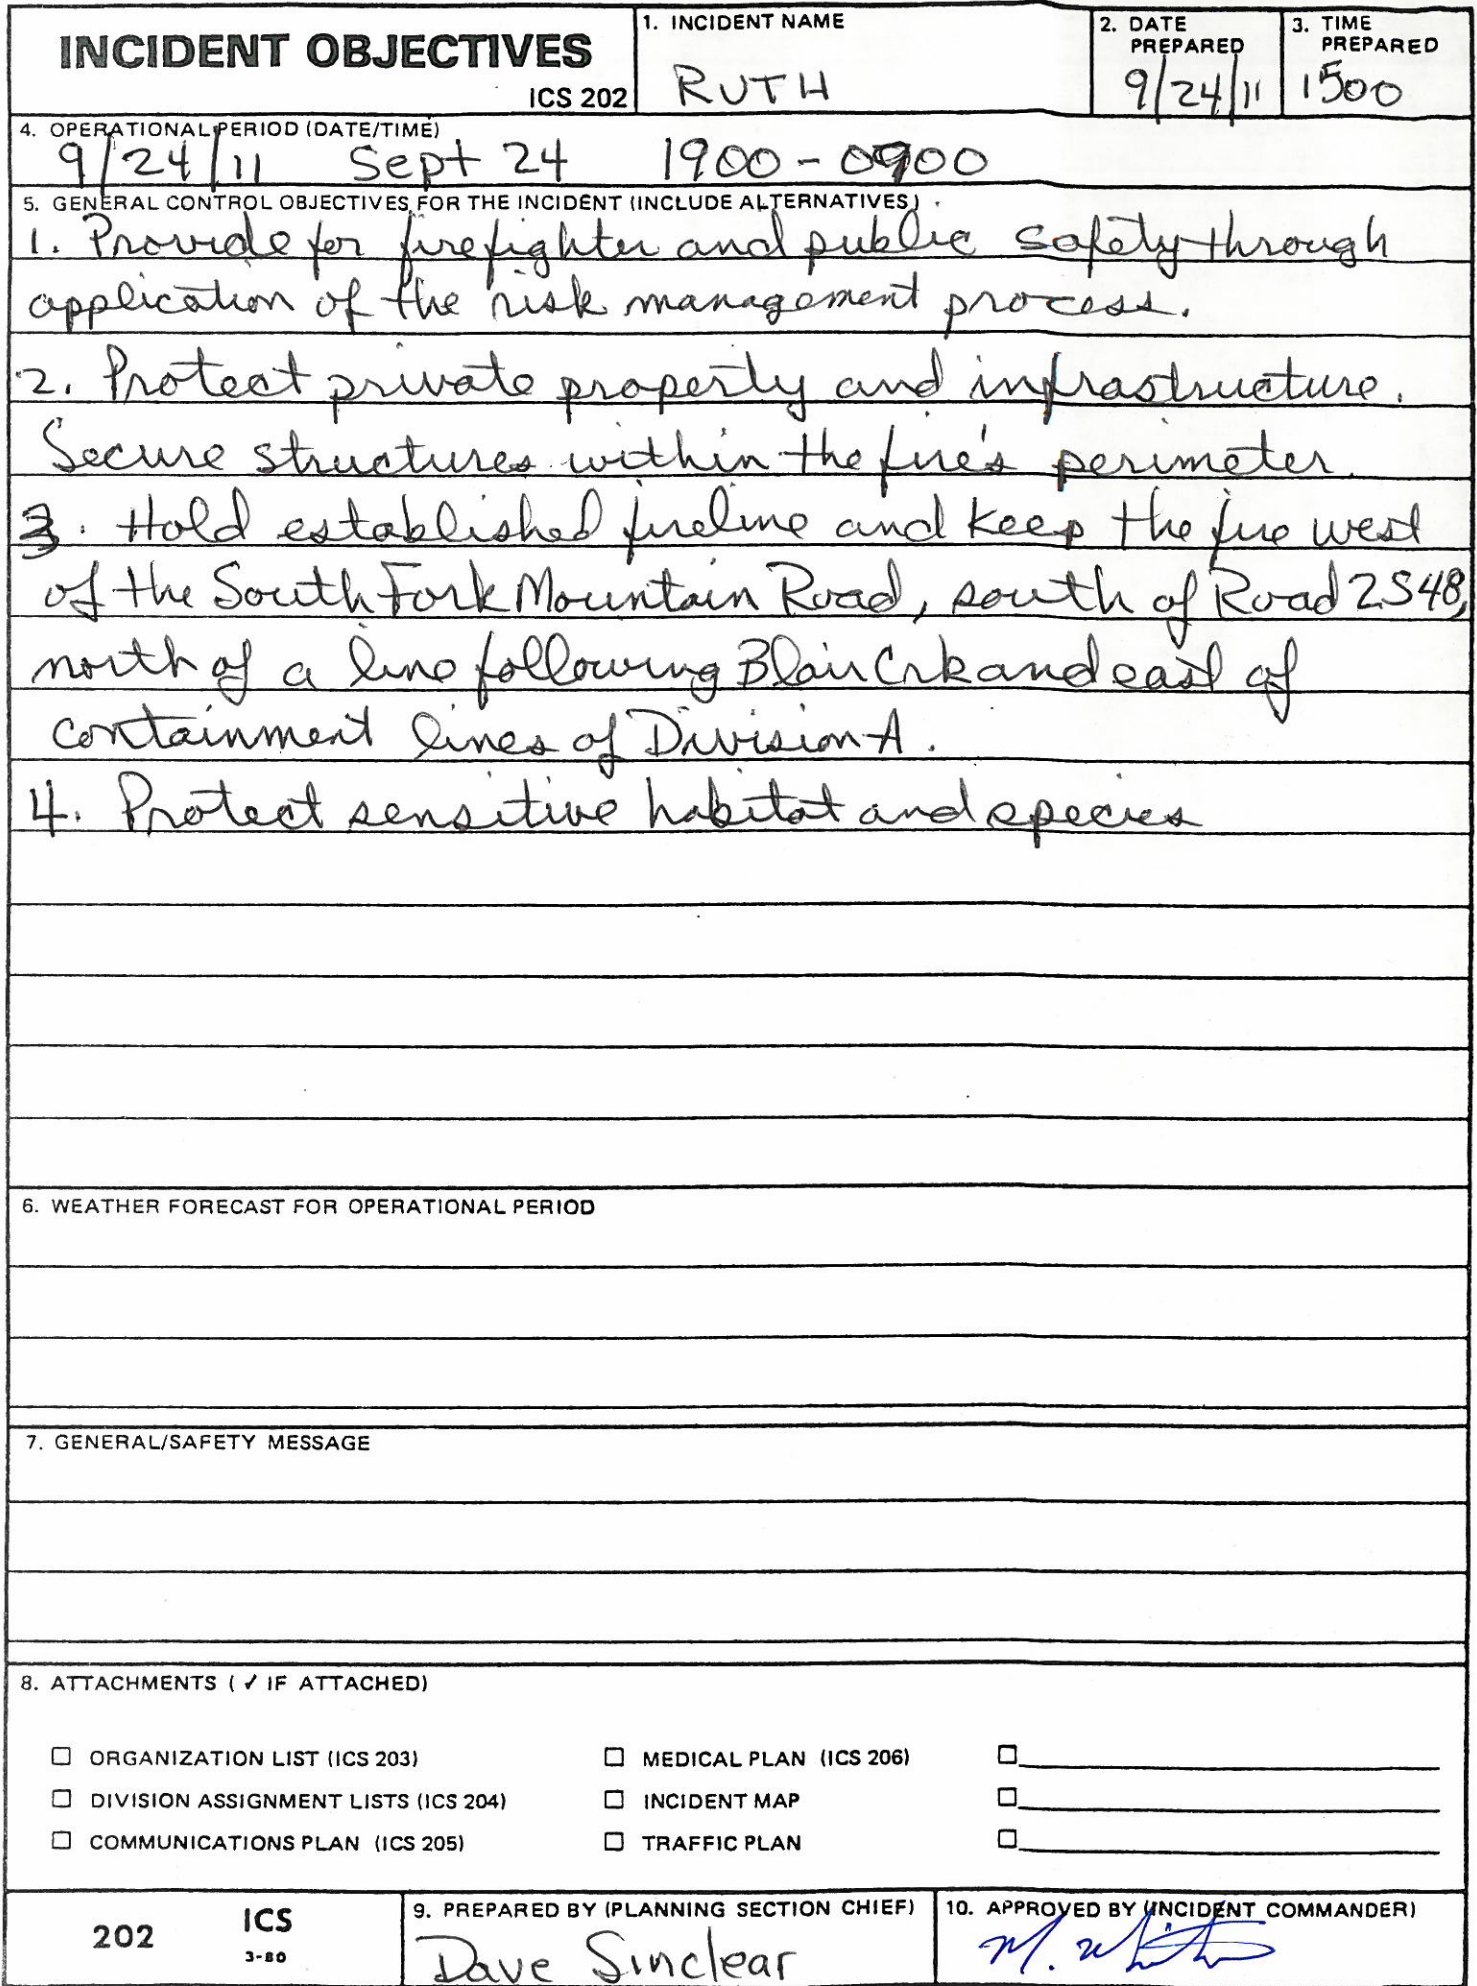 INCIDENT OBJECTIVES
ICS 202
1. INCIDENT NAME
RUTH
2. DATE PREPARED
9/24/11
3. TIME PREPARED
1500
4. OPERATIONAL PERIOD (DATE/TIME)
9/24/11 Sept 24 1900 - 0900
5. GENERAL CONTROL OBJECTIVES FOR THE INCIDENT (INCLUDE ALTERNATIVES)
1. Provide for firefighter and public safety through
application of the risk management process.
2. Protect private property and infrastructure.
Secure structures within the fire's perimeter.
3. Hold established fireline and keep the fire west
of the South Fork Mountain Road, south of Road 2S48,
north of a line following Blair Crk and east of
containment lines of Division A.
4. Protect sensitive habitat and species
6. WEATHER FORECAST FOR OPERATIONAL PERIOD
7. GENERAL/SAFETY MESSAGE
8. ATTACHMENTS (✓ IF ATTACHED)
☐ ORGANIZATION LIST (ICS 203) ☐ MEDICAL PLAN (ICS 206) ☐
☐ DIVISION ASSIGNMENT LISTS (ICS 204) ☐ INCIDENT MAP ☐
☐ COMMUNICATIONS PLAN (ICS 205) ☐ TRAFFIC PLAN ☐
202 ICS
3-80
9. PREPARED BY (PLANNING SECTION CHIEF)
Dave Sinclear
10. APPROVED BY (INCIDENT COMMANDER)
M.